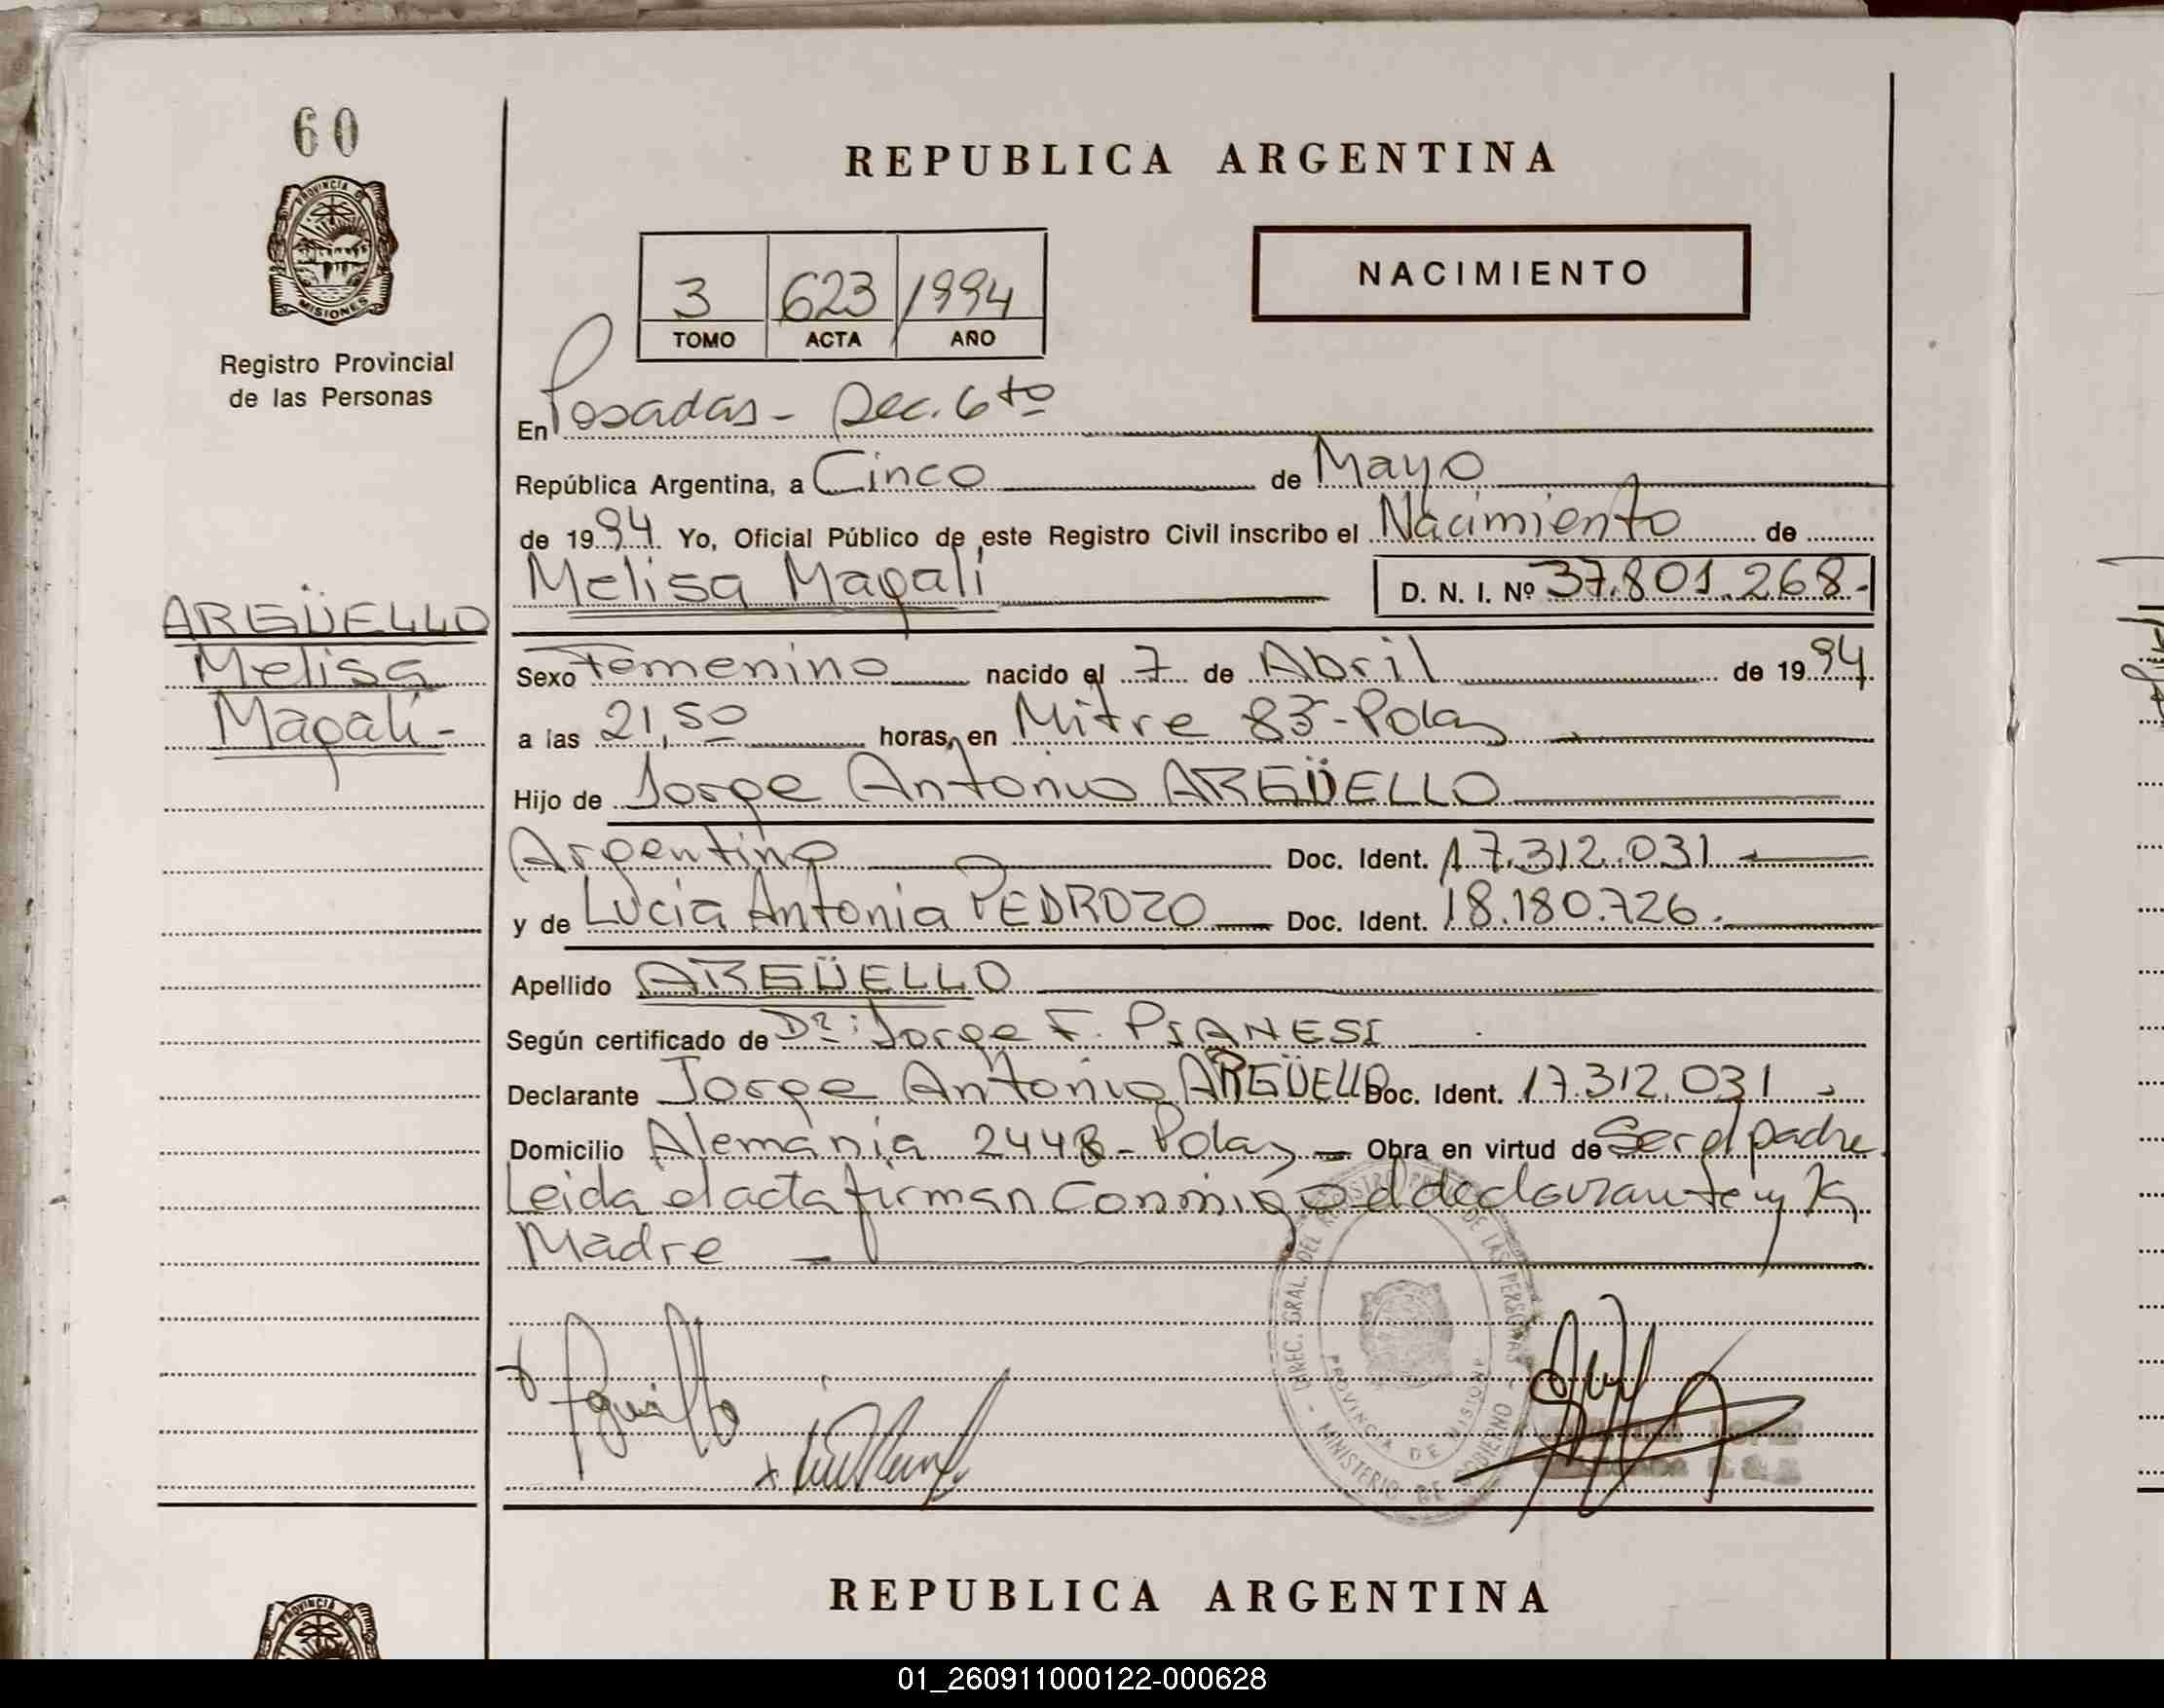 60
PROVINCIA DE
MISIONES
Registro Provincial
de las Personas
ARGÜELLO
Melisa
Magalí-
REPUBLICA ARGENTINA
3 623 1994
TOMO ACTA AÑO
NACIMIENTO
En Posadas - Sec. 6to
República Argentina, a Cinco de Mayo
de 1994 Yo, Oficial Público de este Registro Civil inscribo el Nacimiento de
Melisa Magalí D. N. I. Nº 37.801.268-
Sexo Femenino nacido el 7 de Abril de 1994
a las 21,50 horas, en Mitre 83-Pdas
Hijo de Jorge Antonio ARGÜELLO
Argentino Doc. Ident. 17.312.031
y de Lucia Antonia PEDROZO Doc. Ident. 18.180.726.
Apellido ARGÜELLO
Según certificado de Dr: Jorge F. PIANESI
Declarante Jorge Antonio ARGÜELLO Doc. Ident. 17.312.031
Domicilio Alemania 2448-Pdas Obra en virtud de Ser el padre.
Leida el acta firman Conmigo el declarante y la
Madre
DIREC. GRAL. DEL REGISTRO PROV. DE LAS PERSONAS - MINISTERIO DE GOBIERNO -
PROVINCIA DE MISIONES
REPUBLICA ARGENTINA
PROVINCIA DE
01_260911000122-000628